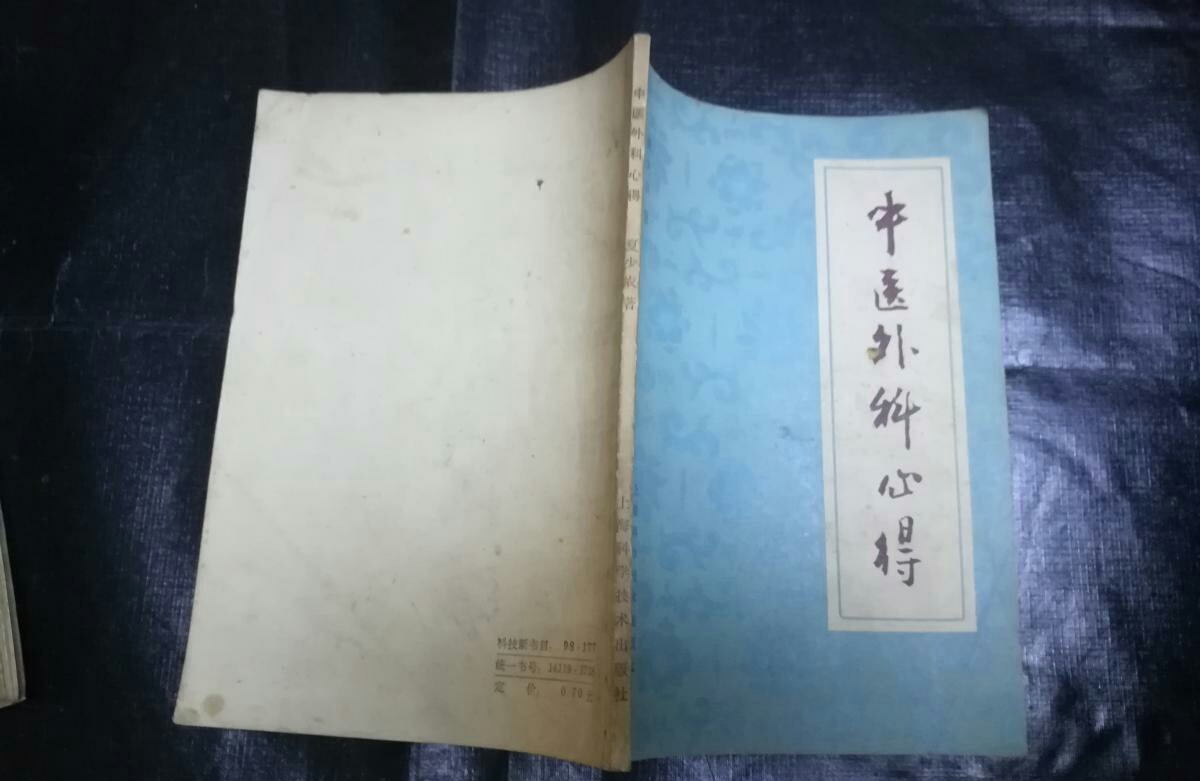 中医外科心得
中医外科心得 夏少农著 上海科学技术出版社
科技新书目: 98-177
统一书号:
定 价: 0.70元